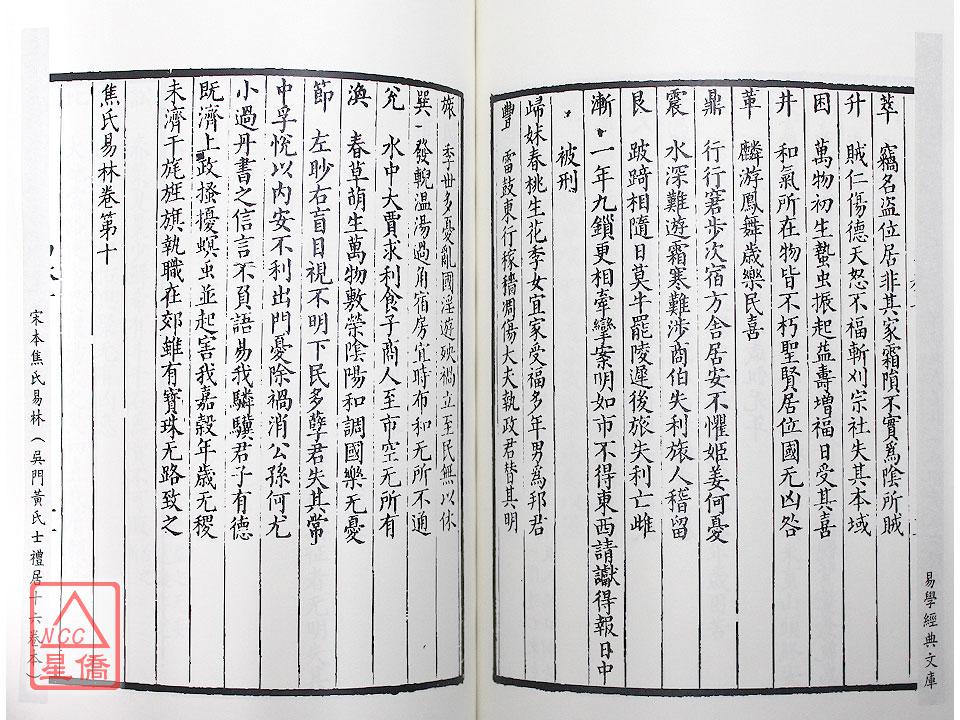 萃　竊名盜位居非其家霜隕不實為陰所賊
升　賊仁傷德天怒不福斬刈宗社失其本域
困　萬物初生蟄虫振起益壽增福日受其喜
井　和氣所在物皆不朽聖賢居位國无凶咎
革　麟游鳳舞歲樂民喜
鼎　行行窘步次宿方舍居安不懼姬姜何憂
震　水深難遊霜寒難涉商伯失利旅人稽留
艮　跛踦相隨日莫牛罷陵遲後旅失利亡雌
漸　一年九鎖更相牽攣案明如市不得東西請讞得報日中
被刑
歸妹春桃生花季女宜家受福多年男為邦君
豐　雷鼓東行稼穡凋傷大夫執政君替其明
旅　季世多憂亂國淫遊殃禍立至民無以休
巽　發輗溫湯過角宿房宜時布和无所不通
兌　水中大賈求利食子商人至市空无所有
渙　春草萌生萬物敷榮陰陽和調國樂无憂
節　左眇右盲目視不明下民多孽君失其常
中孚悅以內安不利出門憂除禍消公孫何尤
小過丹書之信言不負語易我驎驥君子有德
既濟上政搔擾螟虫並起害我嘉穀年歲无稷
未濟干旄旌旗執職在郊雖有寶珠无路致之
焦氏易林卷第十
宋本焦氏易林（吳門黃氏士禮居十六卷本）
易學經典文庫
NCC
星僑